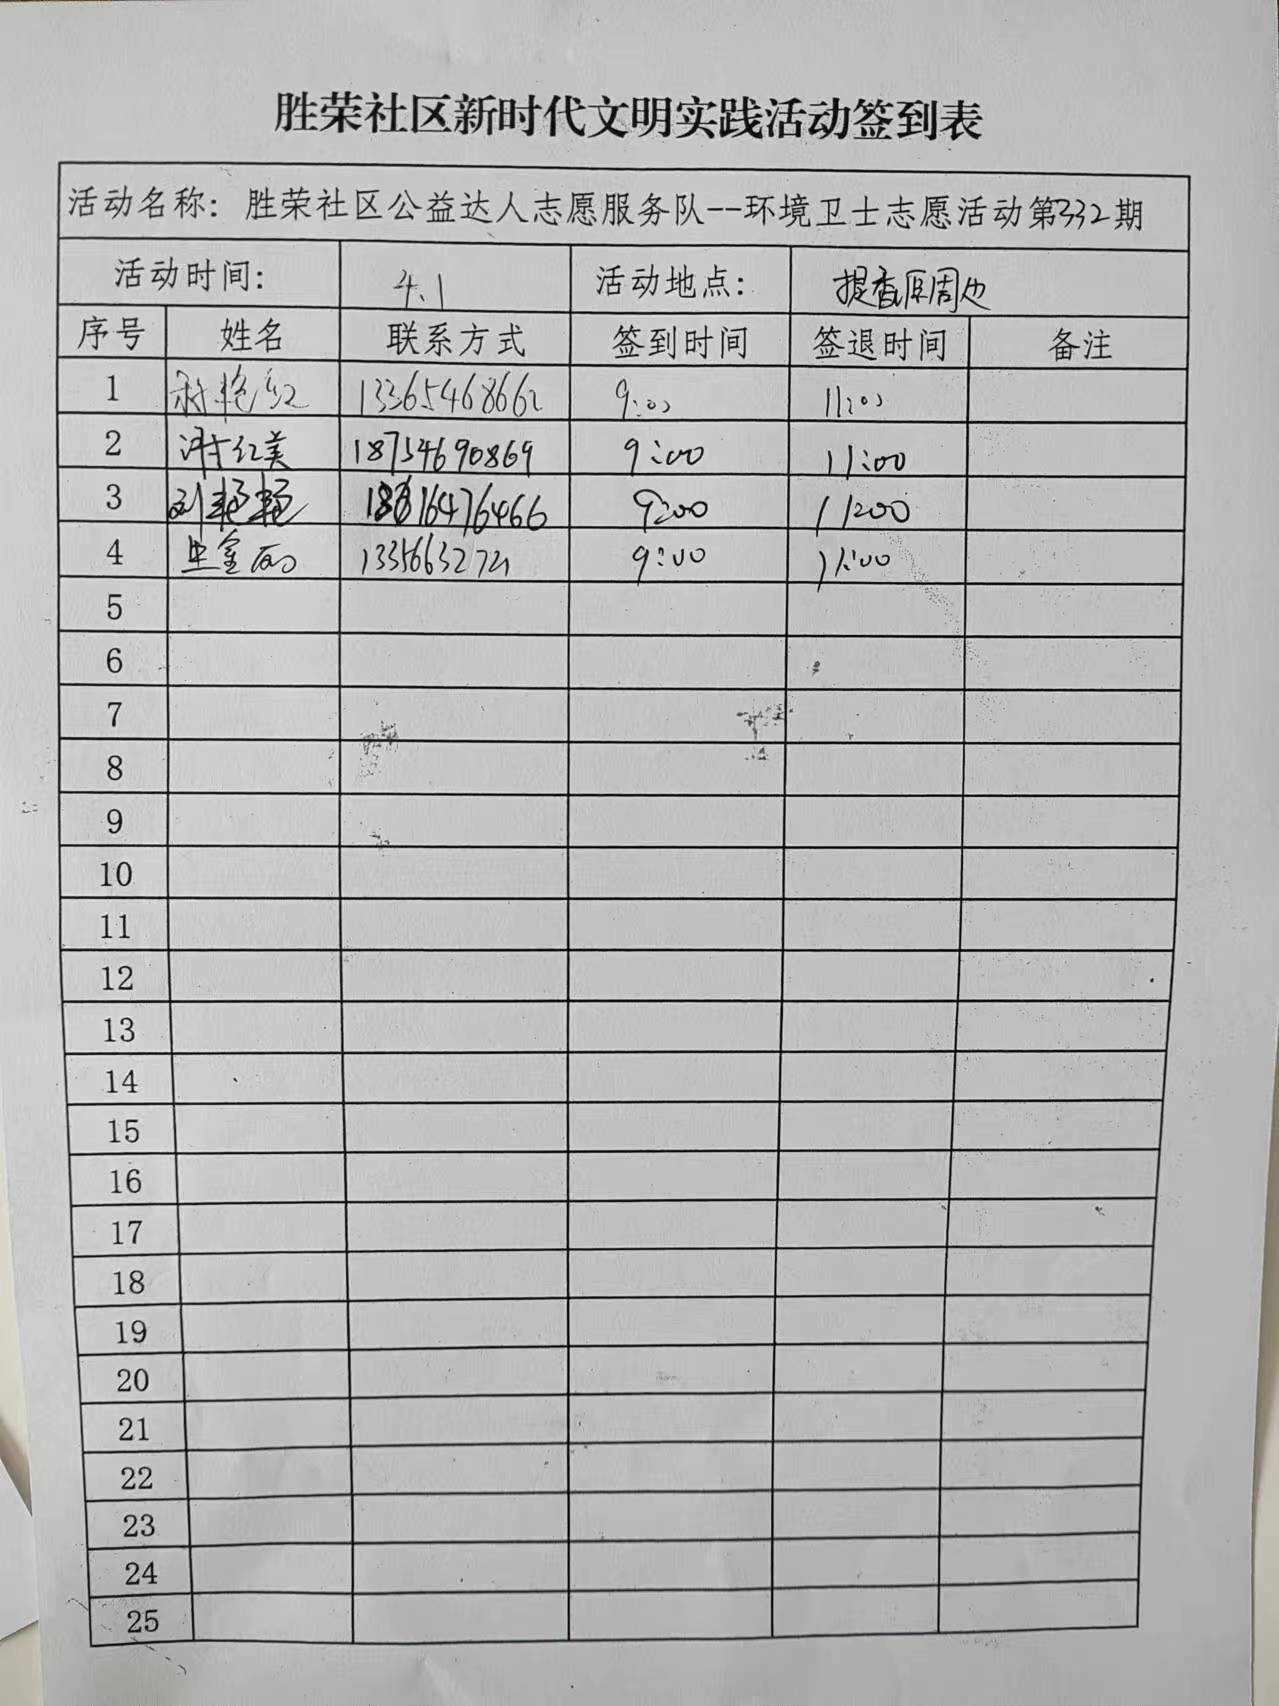 胜荣社区新时代文明实践活动签到表
活动名称：胜荣社区公益达人志愿服务队--环境卫士志愿活动第332期
活动时间： 4.1 活动地点： 提香周边
序号 姓名 联系方式 签到时间 签退时间 备注
1 艳红 13365468662 9:00 11:00
2 红美 18754690869 9:00 11:00
3 刘艳艳 9:00 11:00
4 9:00 11:00
5
6
7
8
9
10
11
12
13
14
15
16
17
18
19
20
21
22
23
24
25